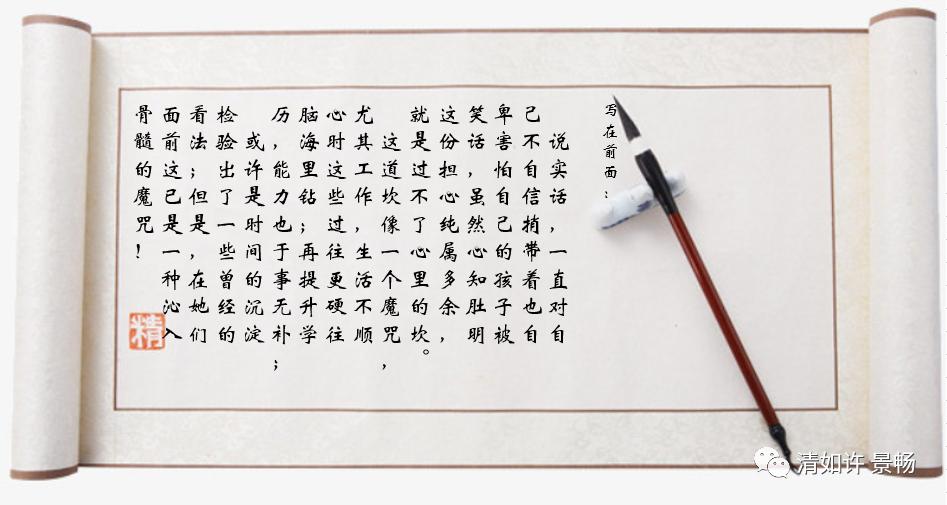 写在前面：
说实话，一直对自
己不自信捎带着也自
卑害怕自己的孩子被
笑话，虽然心知肚明
这份担心纯属多余，
就是过不了心里的坎。
这道坎，像一个魔咒，
尤其工作，生活不顺
心时这些过往更硬往
脑海里钻；再提升学
历，能力也于事无补；
或许是时间的沉淀
检验出了一些曾经的
看法；但是，在她们
面前这已是一种沁入
骨髓的魔咒！
精
清如许 景畅